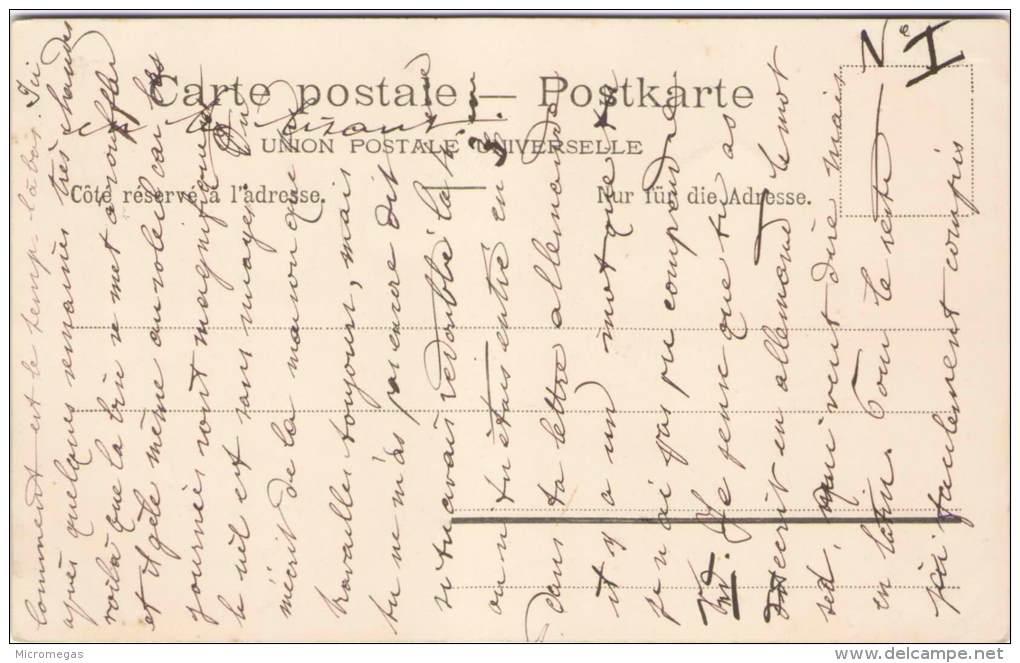 Carte postale — Postkarte
UNION POSTALE UNIVERSELLE
Côté réservé à l'adresse.
Nur für die Adresse.
N° I
Comment est le temps là-bas. Ici
après quelques semaines très chaudes
voilà que la brise se met à souffler
et il gèle même au soleil car les
journées sont magnifiques
le ciel est sans nuages. On
m'écrit de la manœuvre
travailles toujours, mais
tu ne m'as pas encore dit
si tu avais redoublé la
ou si tu étais entré en
dans ta lettre allemande
il y a un mot que
je n'ai pas pu comprendre
Je pense que tu as
écrit en allemand le mot
sed, qui veut dire mais
en latin. Pour le reste
j'ai facilement compris
Micromegas
delcampe.net